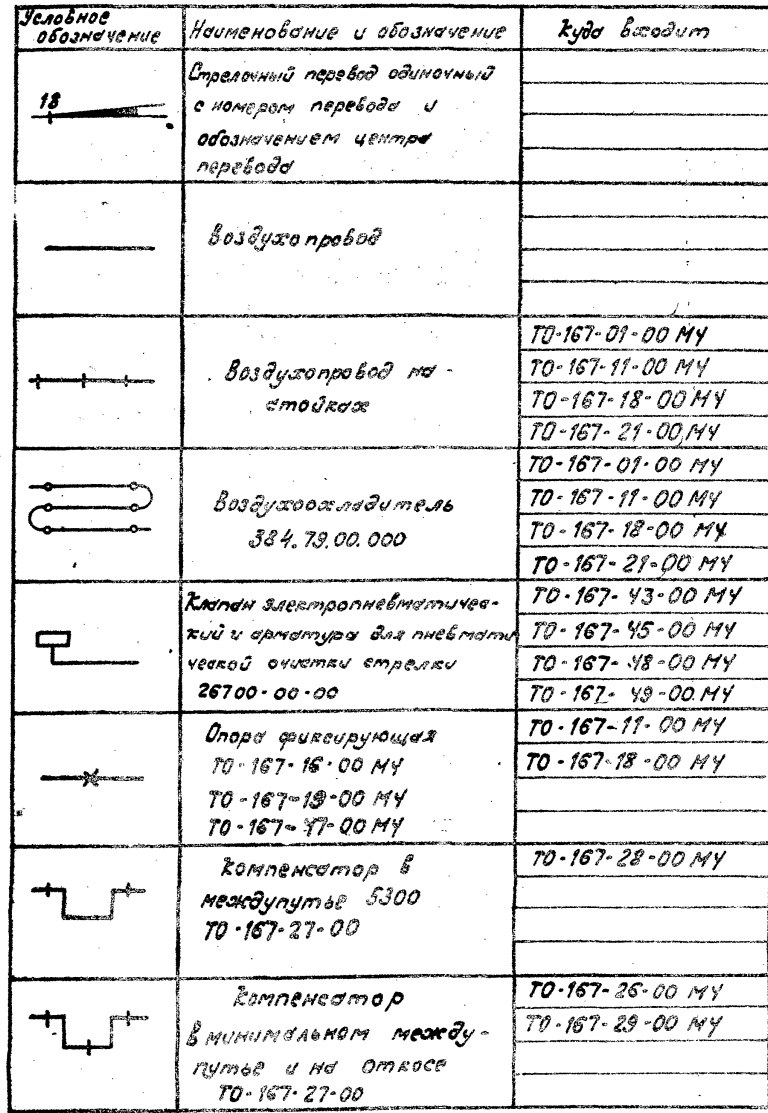 Условное обозначение
Наименование и обозначение
Куда входит
18
Стрелочный перевод одиночный
с номером перевода и
обозначением центра
перевода
Воздухопровод
Воздухопровод на
стойках
ТО-167-01-00 МЧ
ТО-167-11-00 МЧ
ТО-167-18-00 МЧ
ТО-167-21-00 МЧ
Воздухоохладитель
384.79.00.000
ТО-167-01-00 МЧ
ТО-167-11-00 МЧ
ТО-167-18-00 МЧ
ТО-167-21-00 МЧ
Клапан электропневматичес-
кий и арматура для пневмати
ческой очистки стрелки
26700-00-00
ТО-167-43-00 МЧ
ТО-167-45-00 МЧ
ТО-167-48-00 МЧ
ТО-167-49-00 МЧ
Опора фиксирующая
ТО-167-16-00 МЧ
ТО-167-19-00 МЧ
ТО-167-47-00 МЧ
ТО-167-11-00 МЧ
ТО-167-18-00 МЧ
Компенсатор в
междупутье 5300
ТО-167-27-00
ТО-167-28-00 МЧ
Компенсатор
в минимальном между-
путье и на откосе
ТО-167-27-00
ТО-167-26-00 МЧ
ТО-167-29-00 МЧ